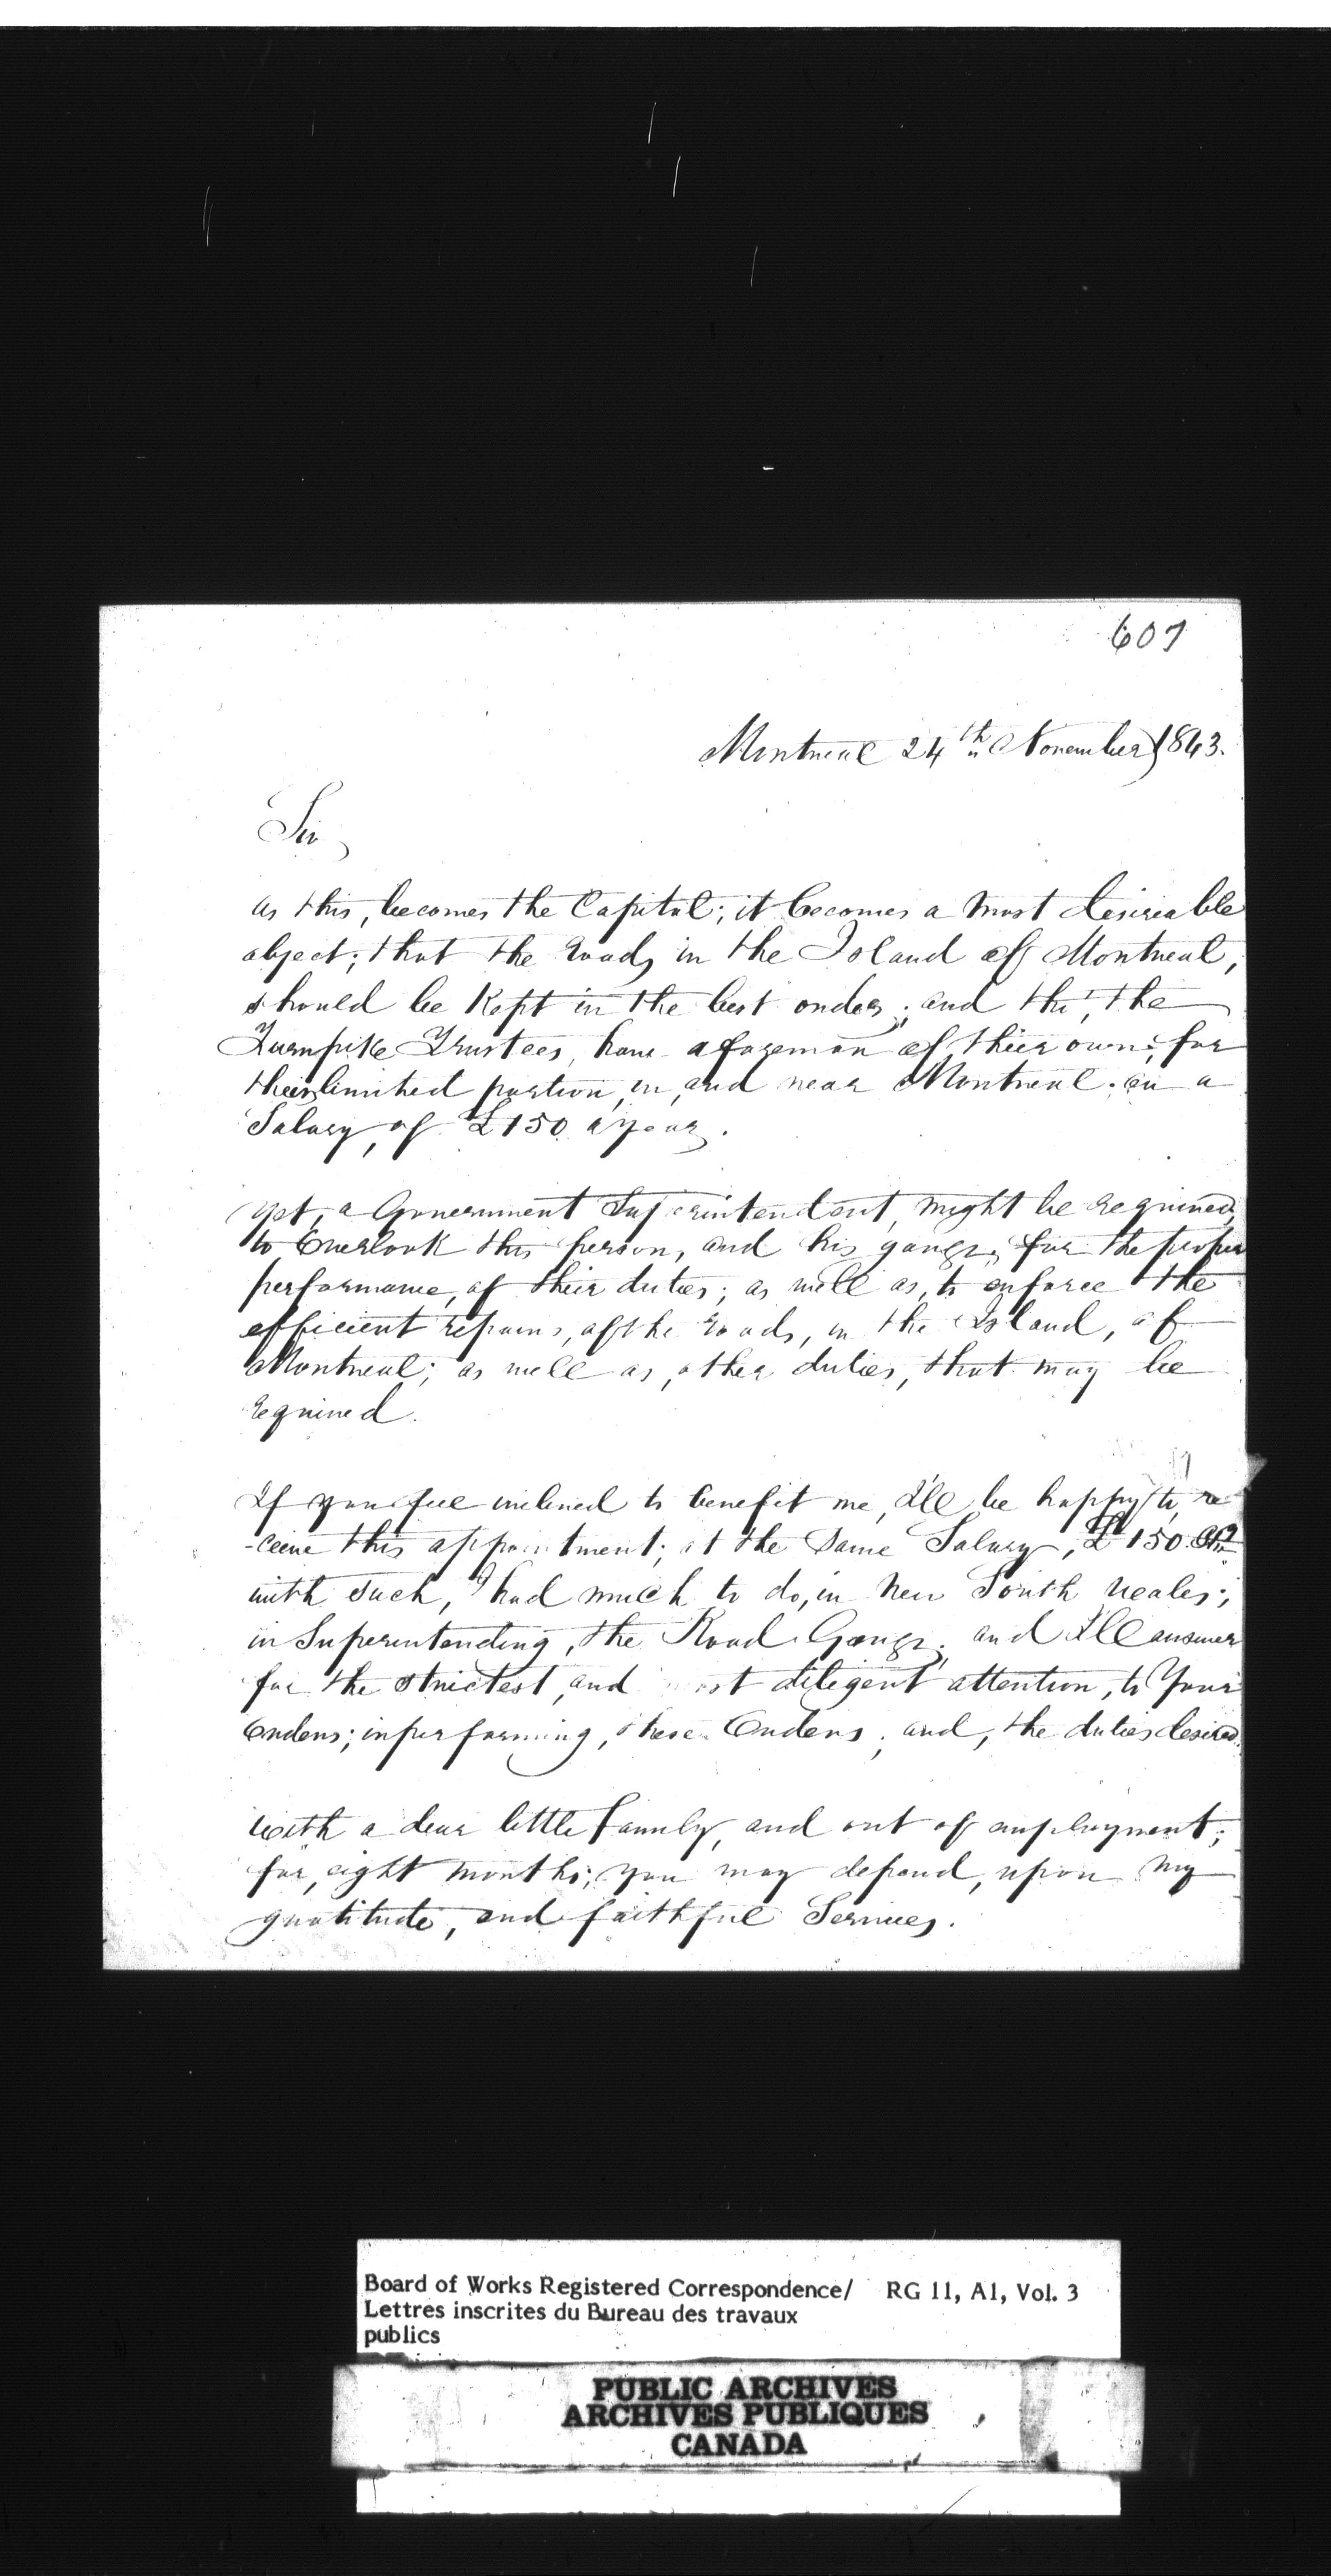 607
Montreal 24th November 1843.
Sir,
as this, becomes the Capital; it becomes a most desireable
object; that the roads in the Island of Montreal,
should be Kept in the best order; and tho', the
Turnpike Trustees, have a foreman of their own; for
their limited portion, in, and near Montreal. on a
Salary, of £150 a year.
yet, a Government Superintendent, might be required,
to Overlook this person, and his gangs, for the proper
performance, of their duties; as well as, to enforce the
efficient repairs, of the roads, in the Island, of
Montreal; as well as, other duties, that may be
required.
If you feel inclined to benefit me, I'll be happy to, re
-ceive this appointment; at the Same Salary, £150
with such, I had much to do, in New South Wales;
in Superintending, the Road Gangs; and I'll answer
for the strictest, and most diligent attention, to Your
Orders; in performing, these Orders; and, the duties desired.
With a dear little family, and out of employment;
for, eight months; you may depend, upon my
gratitude, and faithful Services.
Board of Works Registered Correspondence/ RG 11, A1, Vol. 3
Lettres inscrites du Bureau des travaux
publics
PUBLIC ARCHIVES
ARCHIVES PUBLIQUES
CANADA